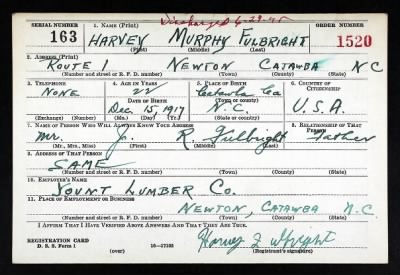 Discharged 6-29-45
SERIAL NUMBER 1. NAME (Print) ORDER NUMBER
163 HARVEY MURPHY FULBRIGHT 1520
(First) (Middle) (Last)
2. ADDRESS (Print)
ROUTE 1 NEWTON CATAWBA N C
(Number and street or R. F. D. number) (Town) (County) (State)
3. TELEPHONE 4. AGE IN YEARS 5. PLACE OF BIRTH 6. COUNTRY OF CITIZENSHIP
NONE 22 Catawba Co
DATE OF BIRTH (Town or county)
Dec. 15, 1917 N. C. U.S.A.
(Exchange) (Number) (Mo.) (Day) (Yr.) (State or country)
7. NAME OF PERSON WHO WILL ALWAYS KNOW YOUR ADDRESS 8. RELATIONSHIP OF THAT PERSON
Mr. R. Fulbright Father
(Mr., Mrs., Miss) (First) (Middle) (Last)
9. ADDRESS OF THAT PERSON
SAME
(Number and street or R. F. D. number) (Town) (County) (State)
10. EMPLOYER'S NAME
YOUNT LUMBER CO.
11. PLACE OF EMPLOYMENT OR BUSINESS
NEWTON, CATAWBA N.C.
(Number and street or R. F. D. number) (Town) (County) (State)
I AFFIRM THAT I HAVE VERIFIED ABOVE ANSWERS AND THAT THEY ARE TRUE.
REGISTRATION CARD
D. S. S. Form 1 (over) 16—17105 (Registrant's signature)